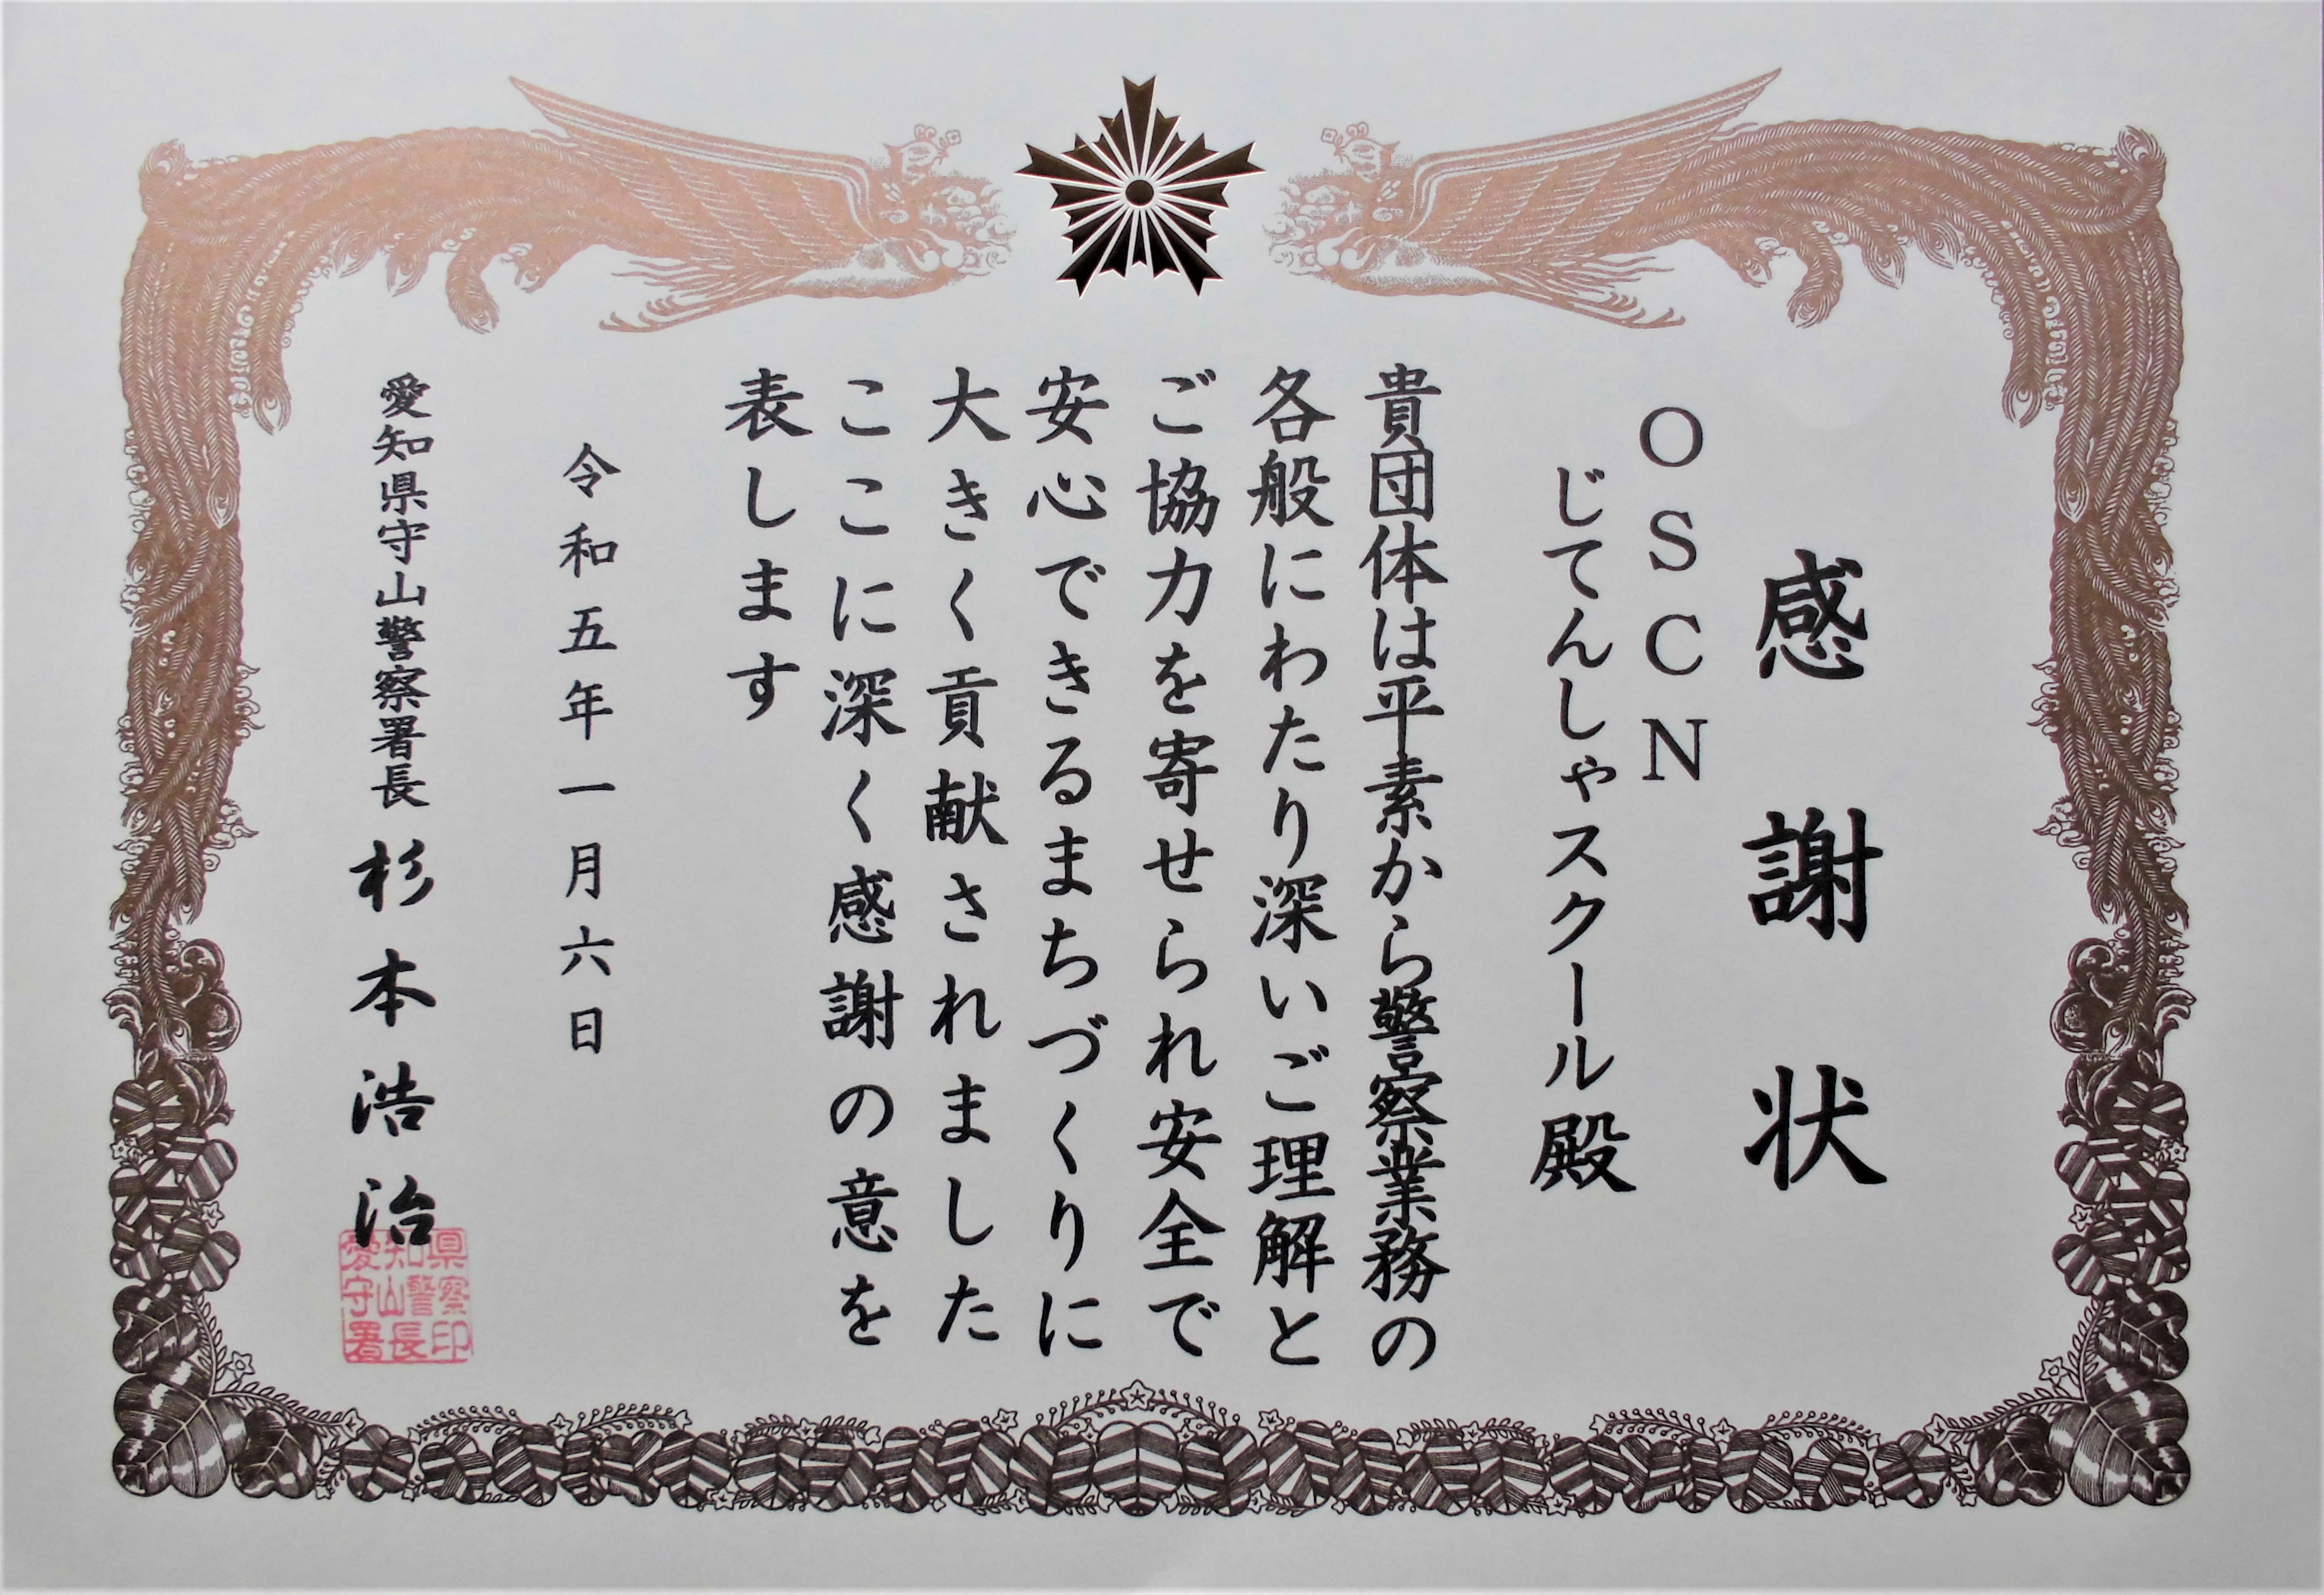 感謝状
OSCN
じてんしゃスクール殿
貴団体は平素から警察業務の
各般にわたり深いご理解と
ご協力を寄せられ安全で
安心できるまちづくりに
大きく貢献されました
ここに深く感謝の意を
表します
令和五年一月六日
愛知県守山警察署長 杉本浩治
愛知県
守山警察
署長印